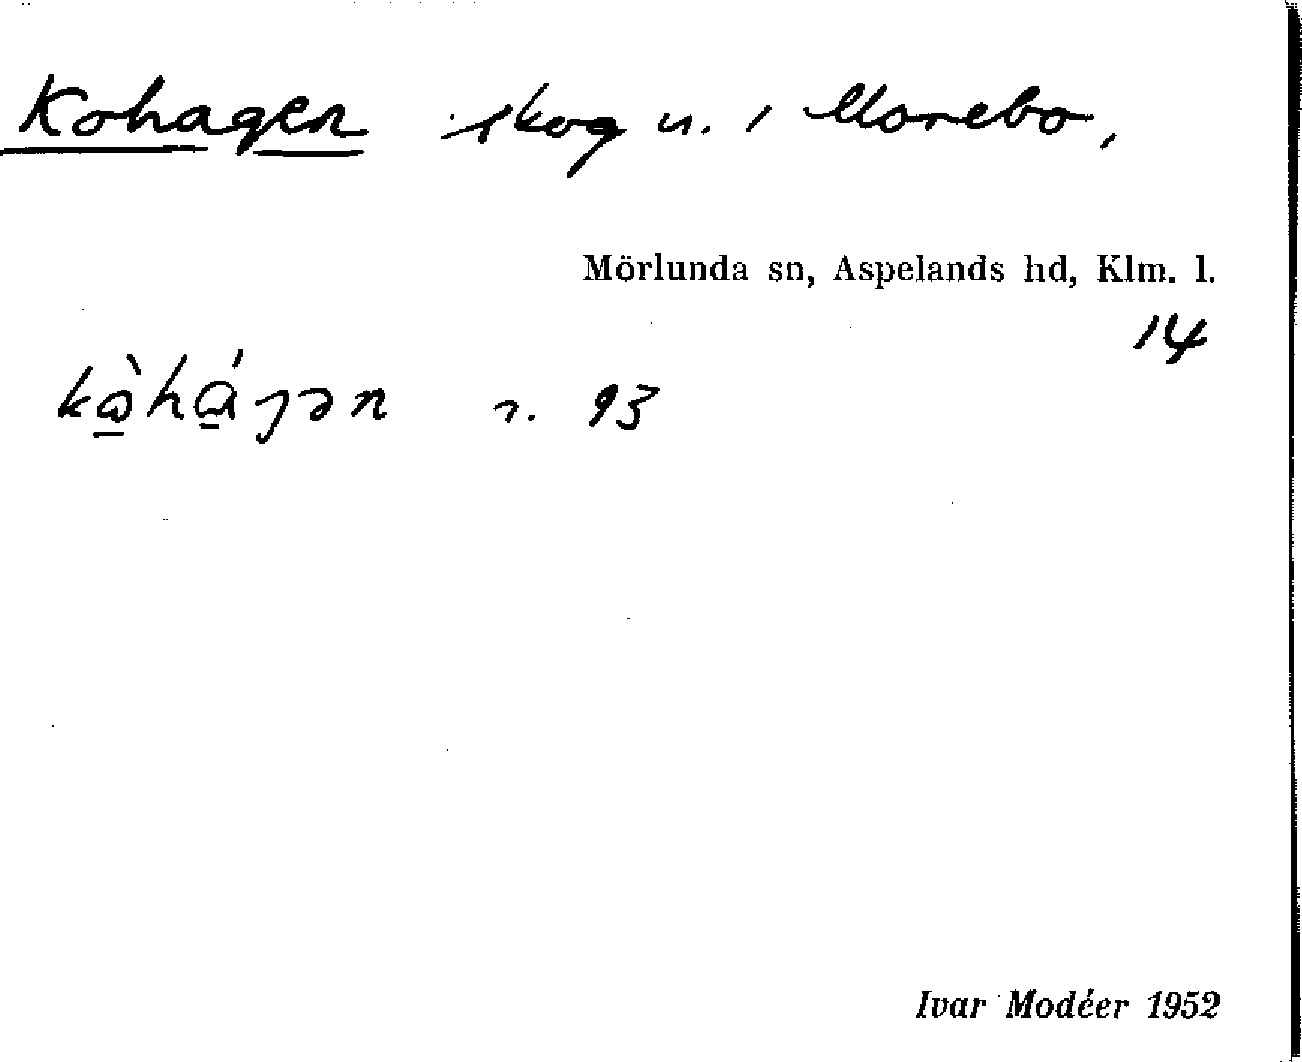 Kohagen skog n. i Morebo,
Mörlunda sn, Aspelands hd, Klm. l.
14
kɷ̠̀hɑ̠́ɡən n. 93
Ivar Modéer 1952